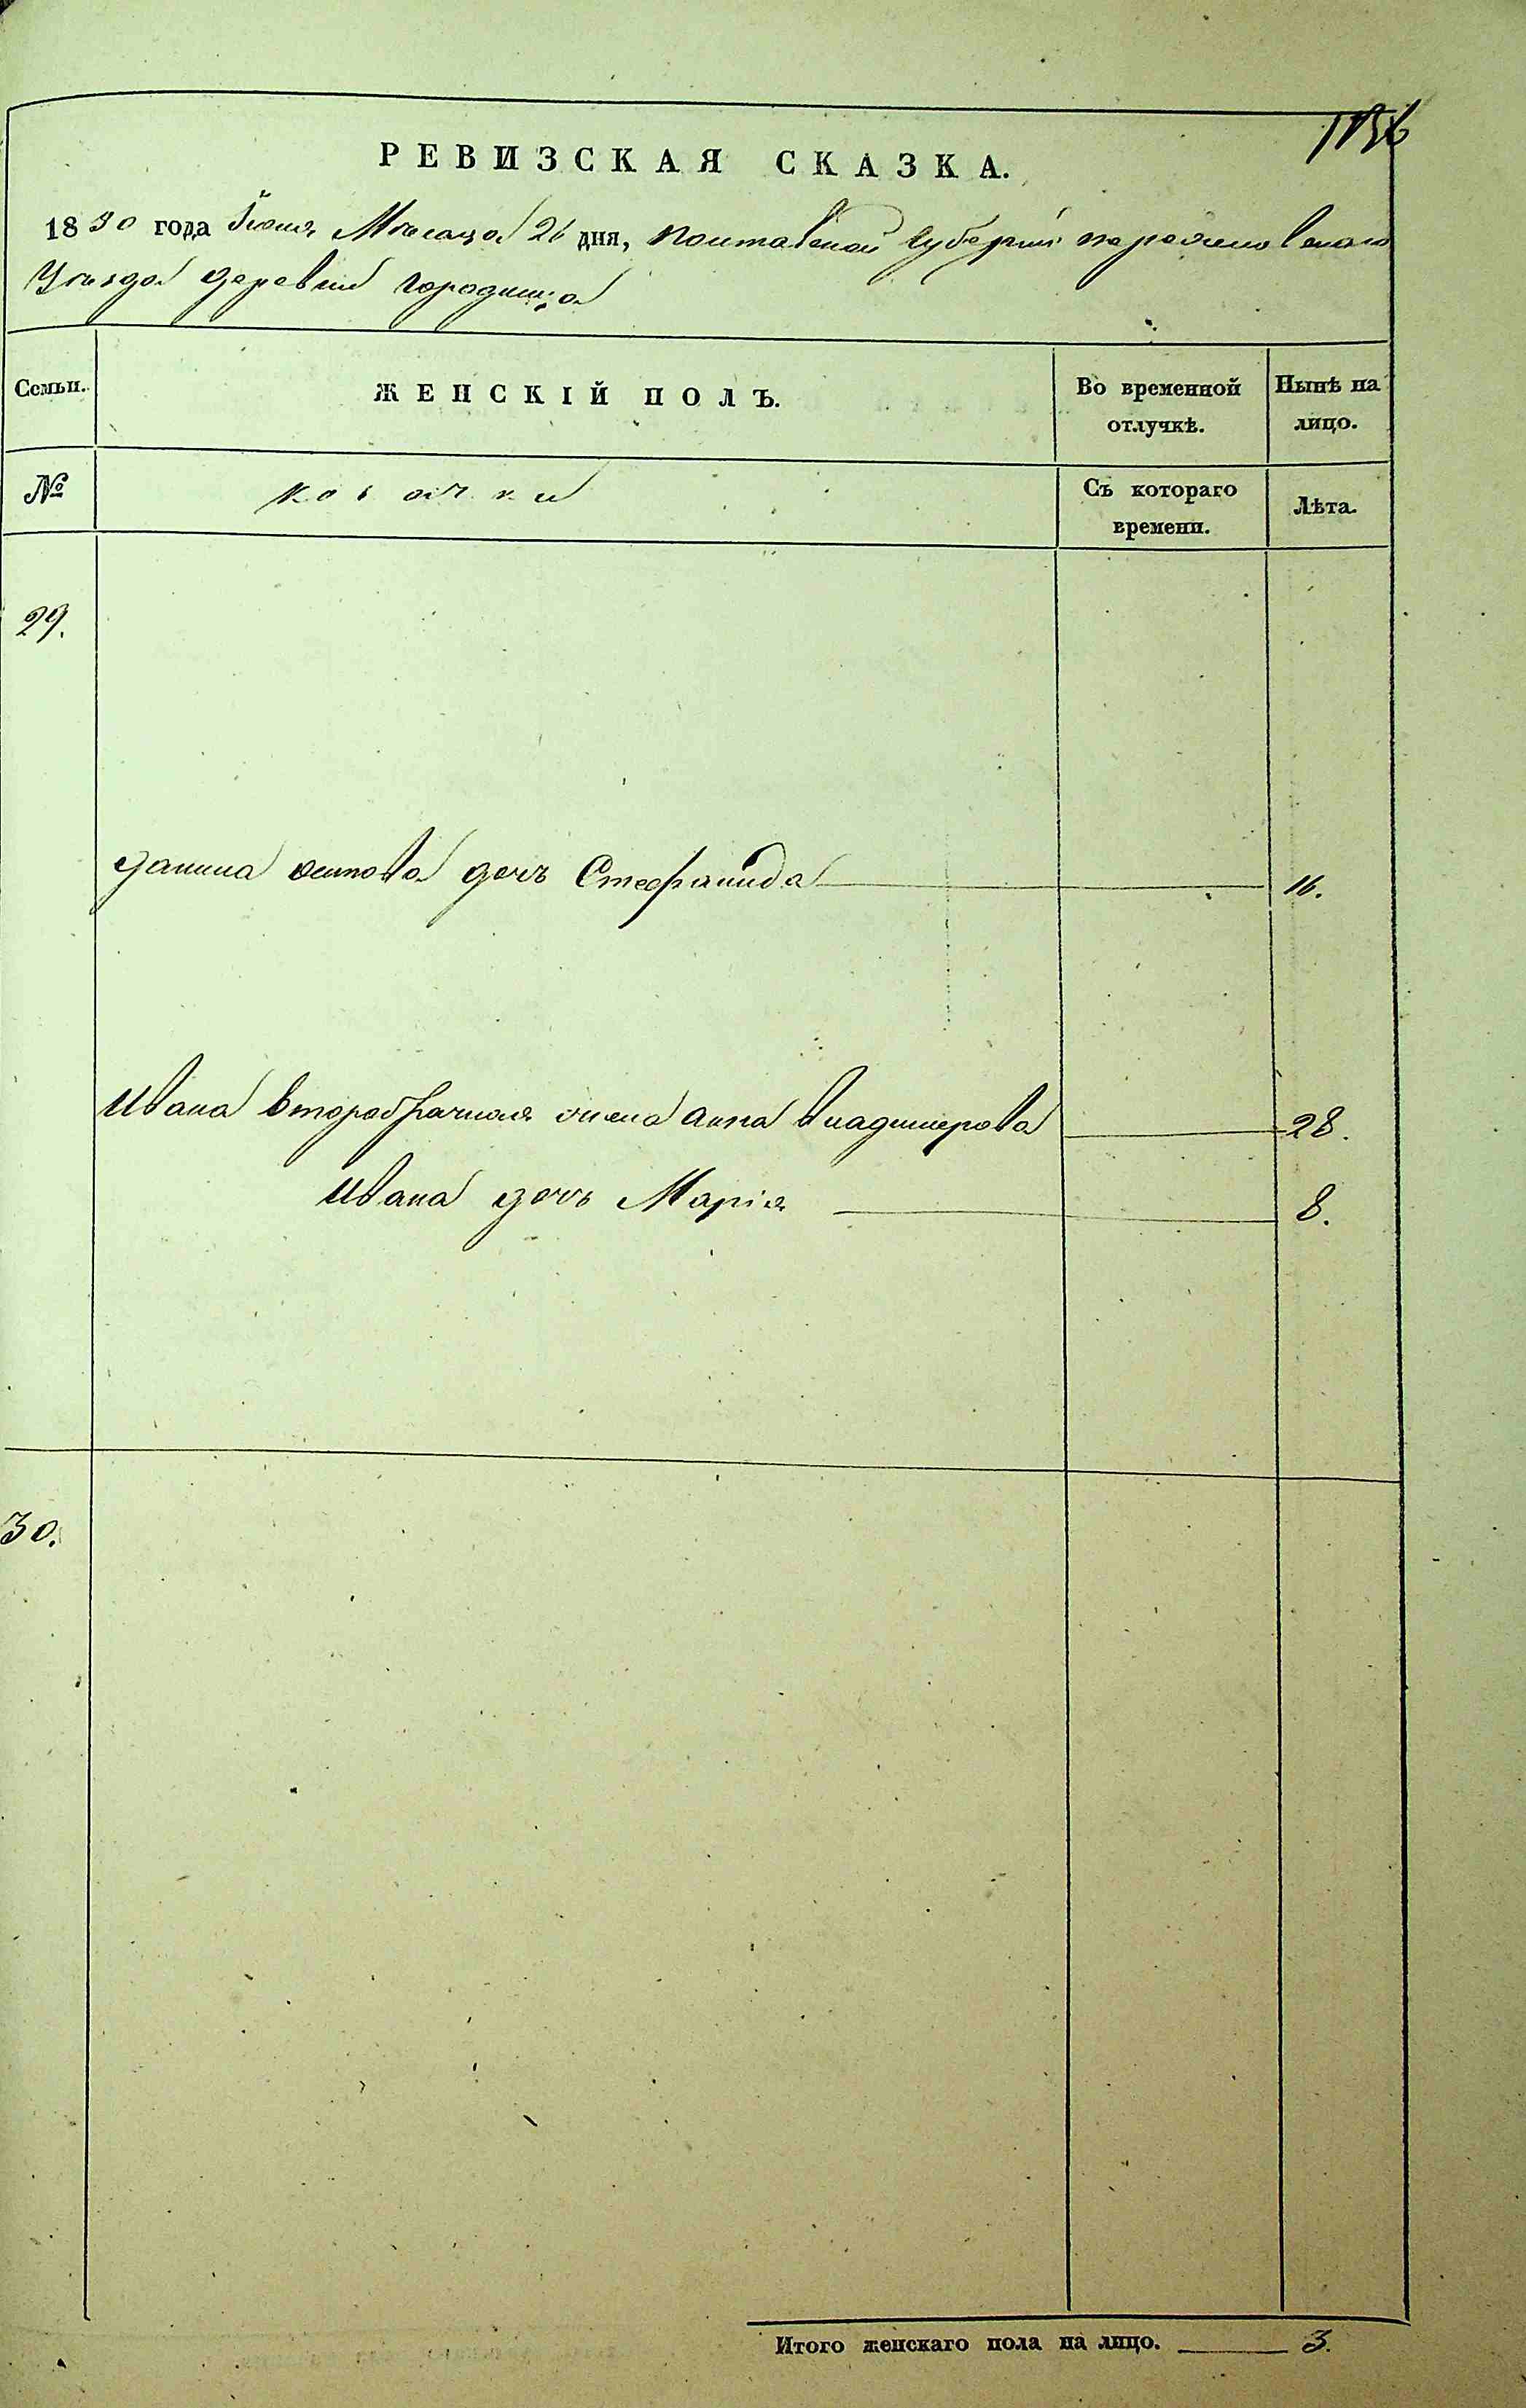 1136
РЕВИЗСКАЯ СКАЗКА.
1850 года Іюня Мѣсяца 26 дня, Полтавской Губерніи переяславскаго
Уѣзда деревни городища
Семьи. ЖЕНСКІЙ ПОЛЪ. Во временной отлучкѣ. Нынѣ на лицо.
№ козачки Съ котораго времени. Лѣта.
29.
данила осипова дочь Стефанида 16.
Ивана второбрачная жена анна владимерова 28.
Ивана дочь Марія 8.
30.
Итого женскаго пола на лицо. 3.